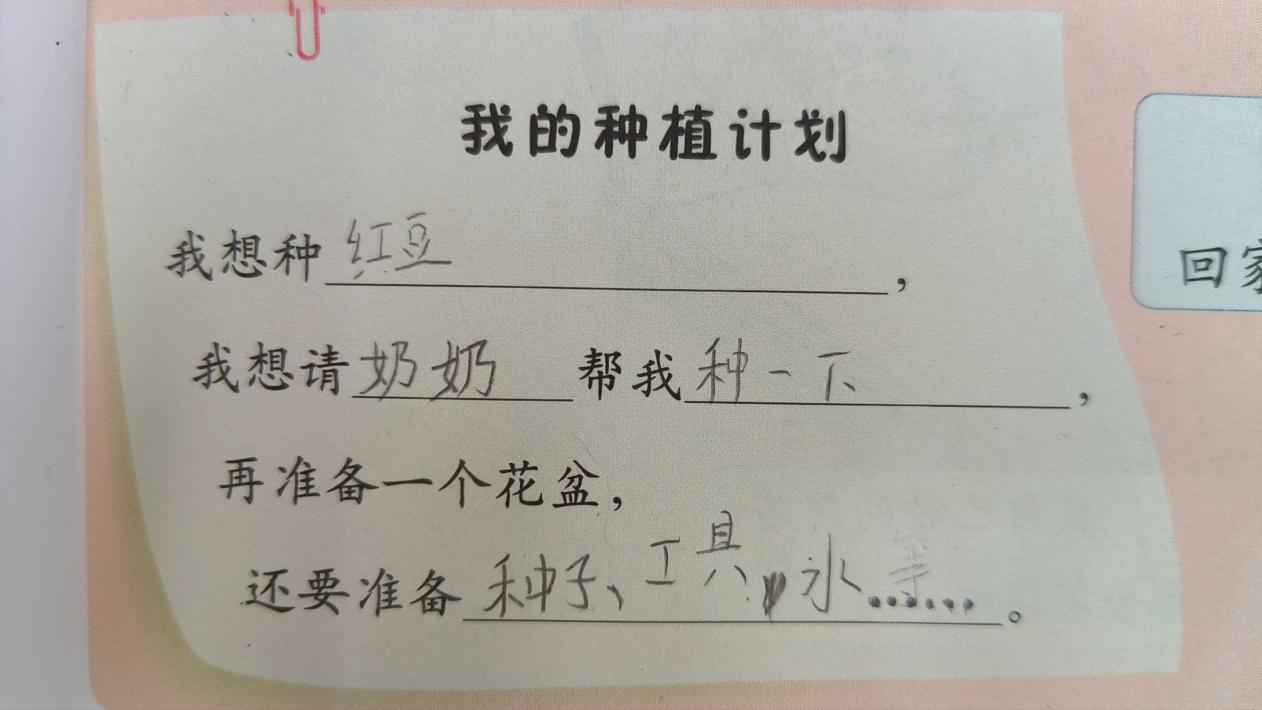 我的种植计划
我想种红豆，
我想请奶奶帮我种一下，
再准备一个花盆，
还要准备种子、工具、水……。
回家